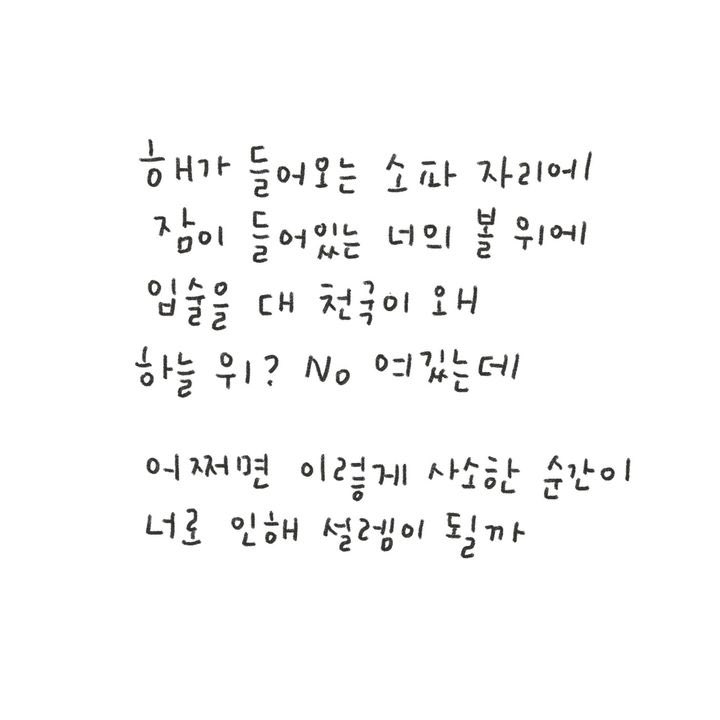 해가 들어오는 소파 자리에
잠이 들어있는 너의 볼 위에
입술을 대 천국이 왜
하늘 위? No 여깄는데
어쩌면 이렇게 사소한 순간이
너로 인해 설렘이 될까